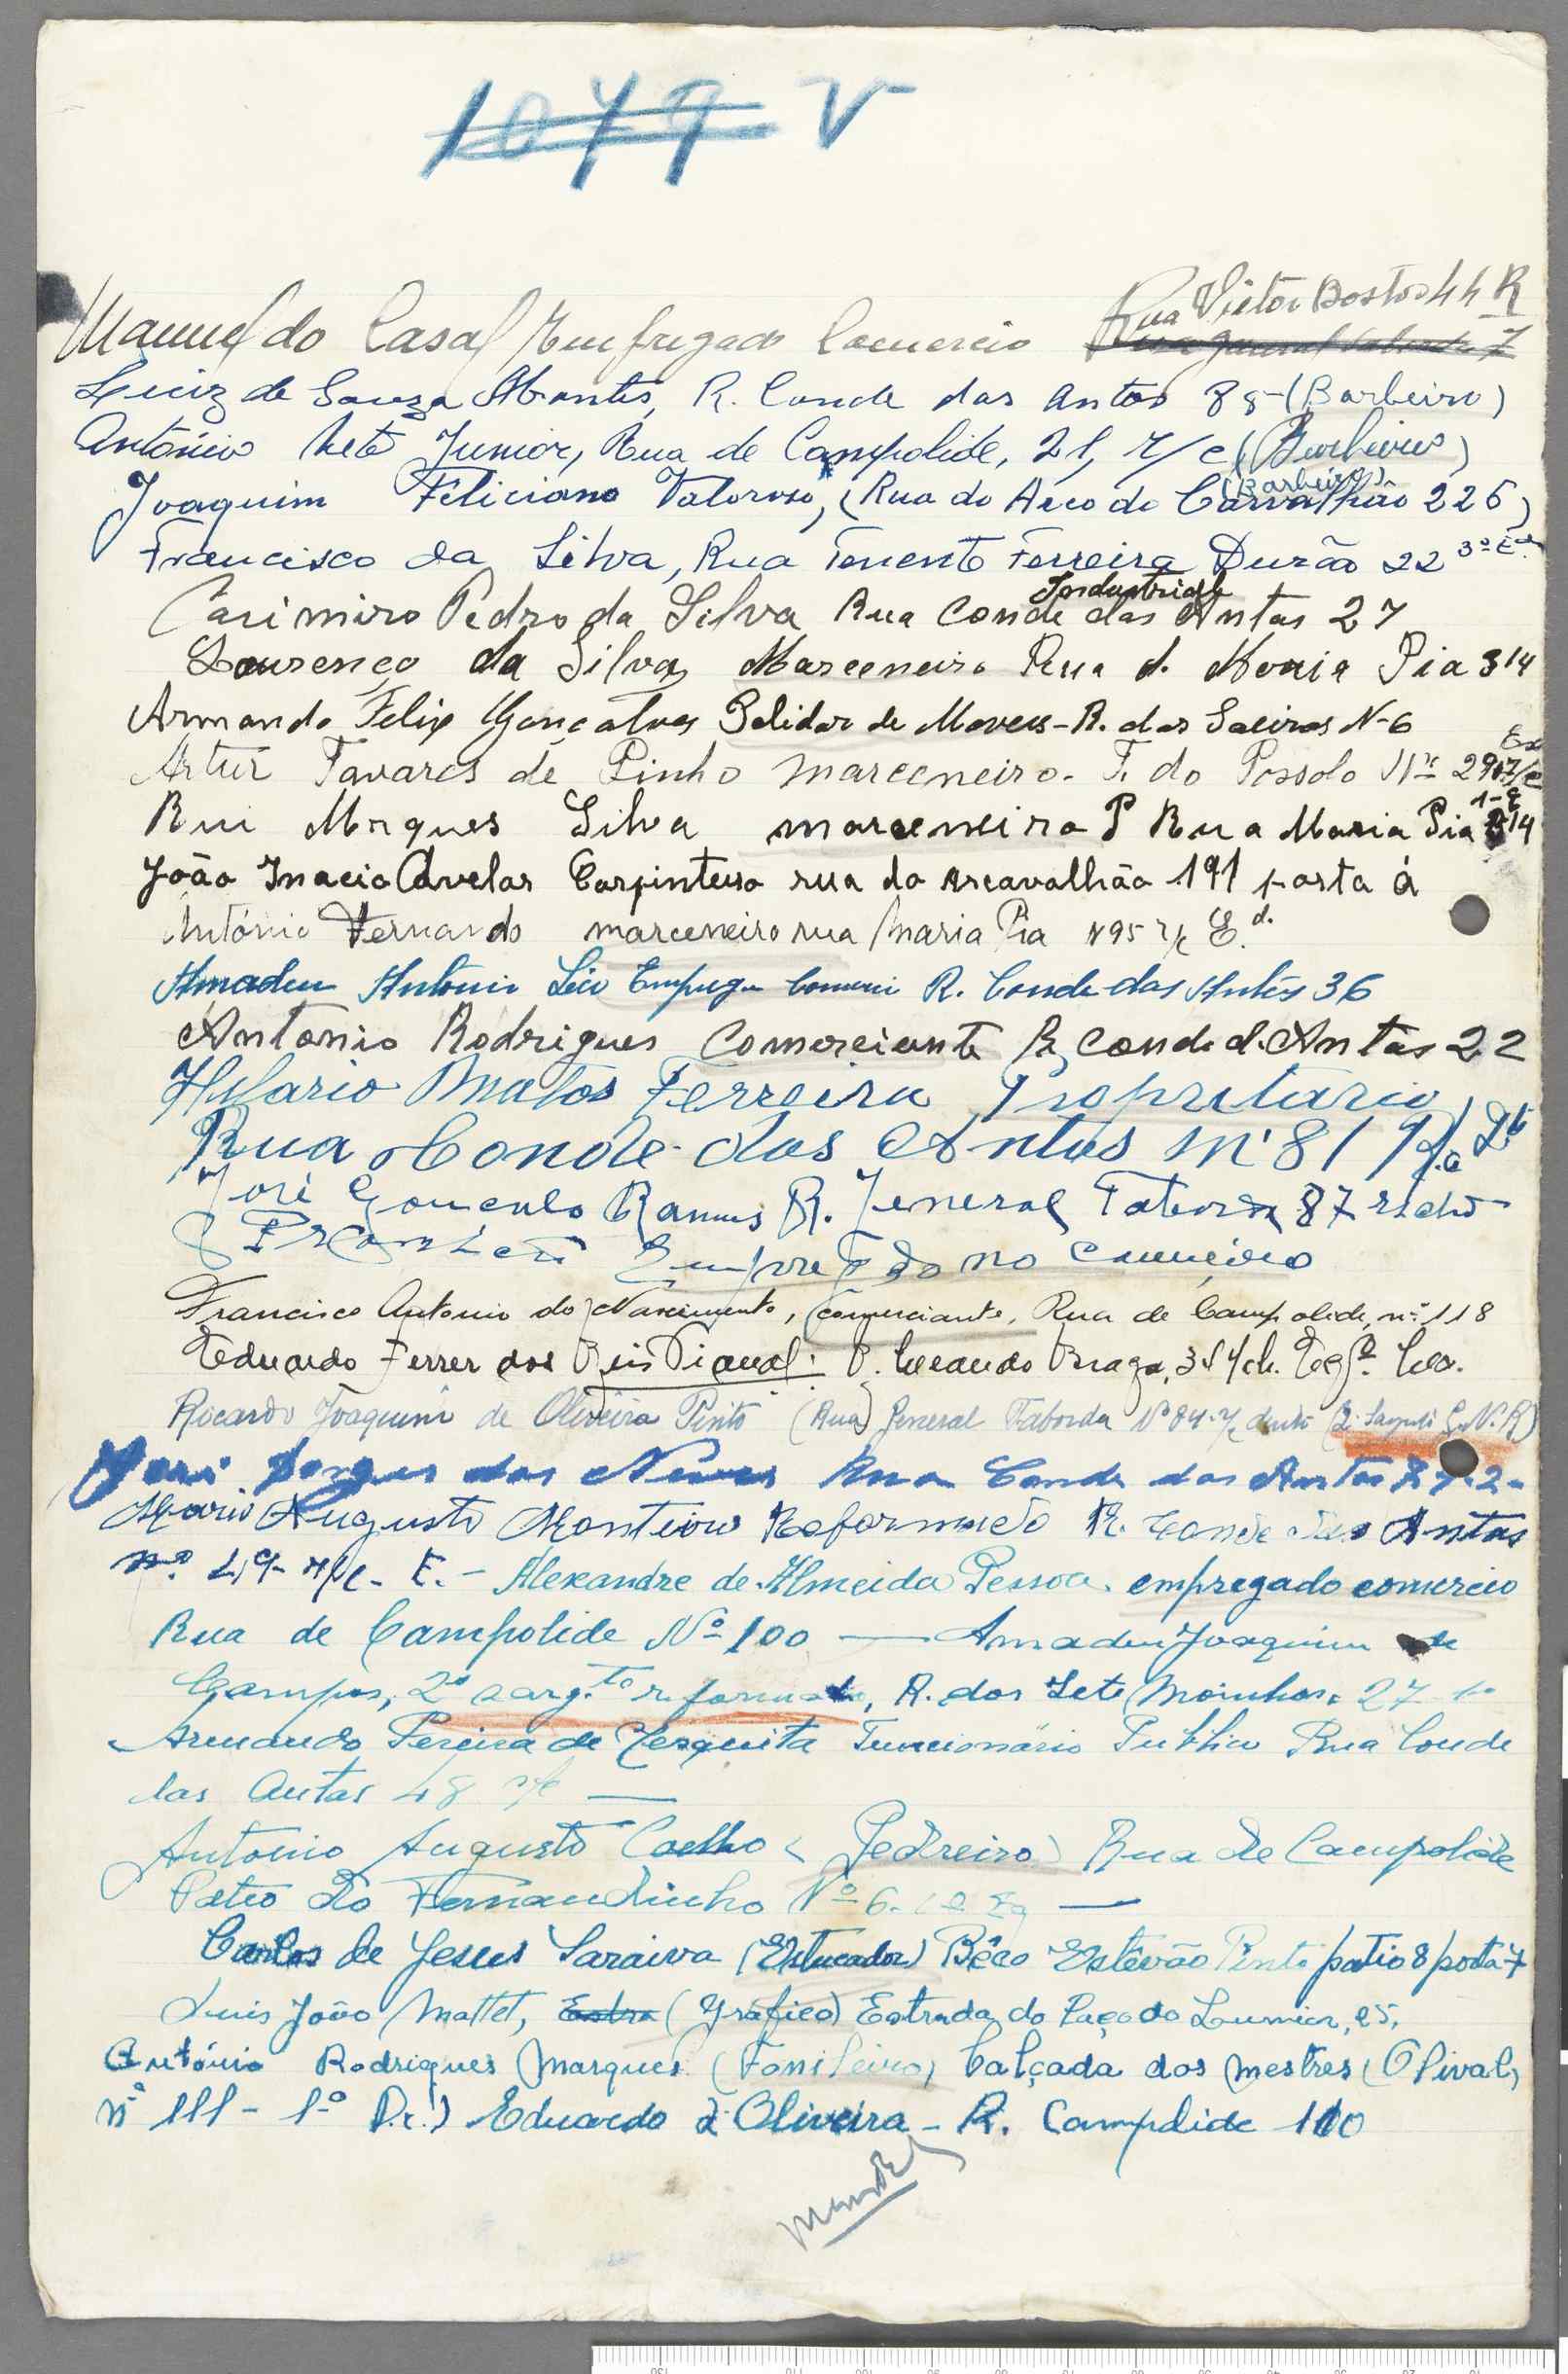 1079 V
Rua Victor Bastos 44 R
Manuel do Casal Empregado Comercio
Luiz de Souza Abrantes, R. Conde das Antas 88 (Barbeiro)
António Neto Junior, Rua de Campolide, 21, r/c (Barbeiro)
(Barbeiro)
Joaquim Feliciano Valoroso, (Rua do Arco do Carvalhão 226)
Francisco da Silva, Rua Tenente Ferreira Durão 22 3º E
Industrial
Casimiro Pedro da Silva Rua Conde das Antas 27
Lourenço da Silva Marceneiro Rua d. Maria Pia 314
Armando Felix Gonçalves Polidor de Moveis - R. dos Saeiros N-6
Artur Tavares de Pinho marceneiro - T. do Possolo Nº 29 r/c
Rui Mrques Silva marceneiro P Rua Maria Pia 314
João Inacio Avelar Carpinteiro rua do arcavalhão 191 porta á
António Fernando marceneiro rua Maria Pia N 95 r/c E.d.
Amadeu Antonio Empreg Comerci R. Conde das Antas 36
Antonio Rodrigues Comerciante R. Conde d. Antas 22
Hilario Matos Ferreira Propritario
Rua Conde das Antas Nº 81
José Goncalo Ramos R. Jeneral Taborda 87 r/chão
Empregado no comercio
Francisco Antonio do Nascimento, comerciante, Rua de Campolide, nº 118
Eduardo Ferrer dos Reis R. Leandro Braga, 3
Ricardo Joaquim de Oliveira Pinto (Rua) General Taborda Nº 84-r/c (2º Sargento G.N.R)
José Borges das Neves Rua Conde das Antas 87-2-
Mario Augusto Monteiro Reformado R. Conde das Antas
nº 49- r/c- E. - Alexandre de Almeida Pessoa, empregado comercio
Rua de Campolide Nº 100 — Amadeu Joaquim de
Campos, 2º sarg.to reformado, R. dos Sete Moinhos, 27
Armando Pereira de Mesquita Funcionário Publico Rua Conde
das Antas 48 r/c —
Antonio Augusto Coelho (Pedreiro) Rua de Campolide
Pateo do Fernandinho Nº 6 —
Carlos de Jesus Saraiva (Estucador) Bêco Estêvão Pinto patio 8 porta 7
Luis João Mattet, Estra (Gráfico) Estrada do Paço do Lumiar, 25,
António Rodrigues Marques (Fonileiro) Calçada dos Mestres (Olival)
nº 111 - 1º D.) Eduardo d'Oliveira - R. Campolide 100